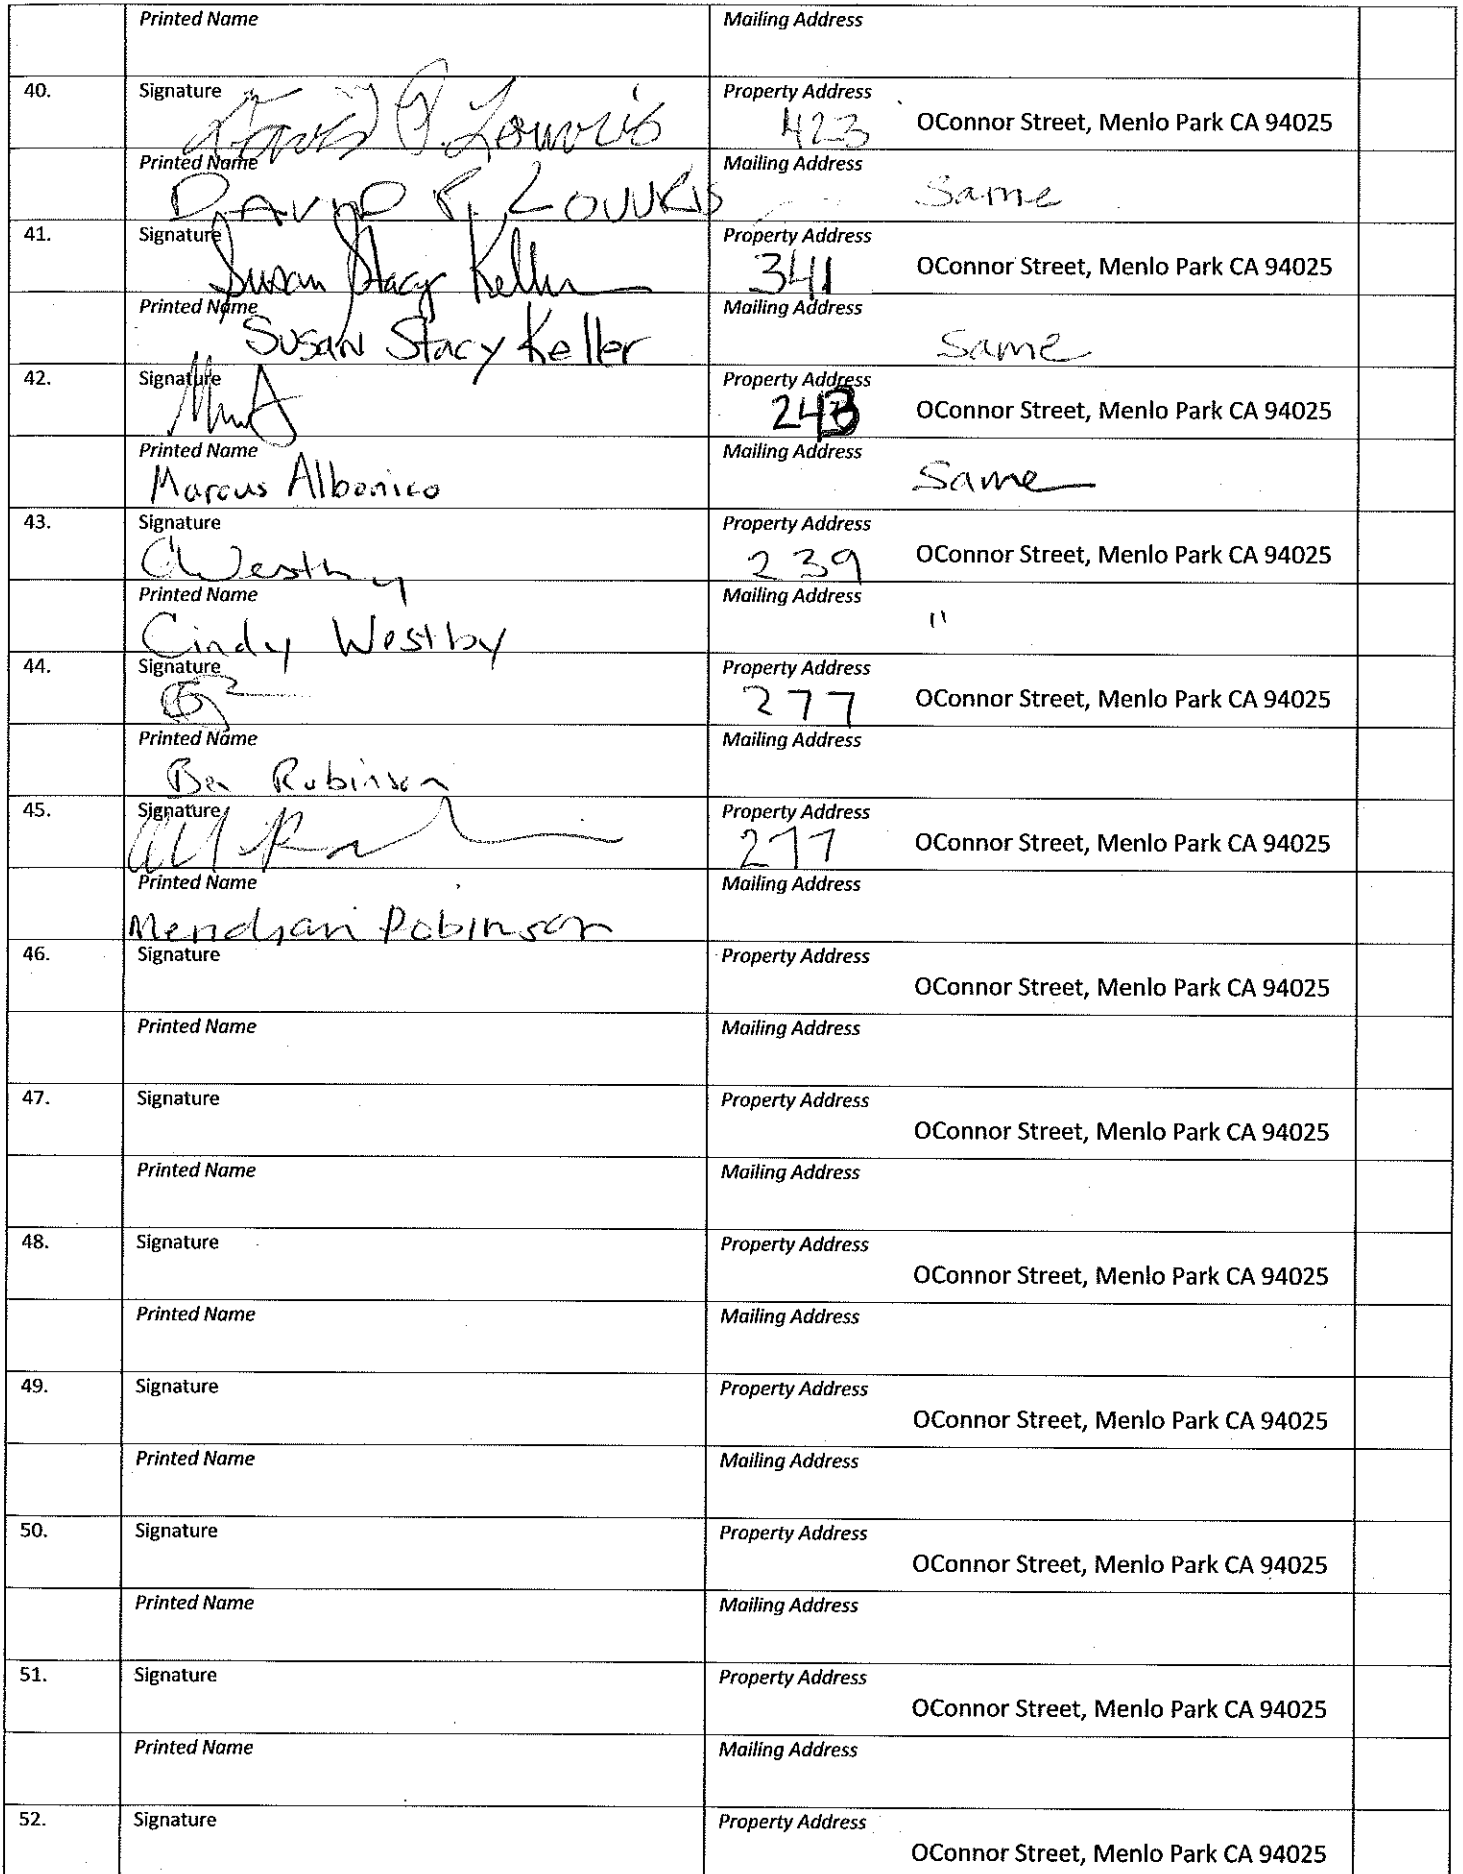 Printed Name Mailing Address
40. Signature Property Address
David P. Louvris 423 OConnor Street, Menlo Park CA 94025
Printed Name Mailing Address
DAVID P. LOUVRIS Same
41. Signature Property Address
Susan Stacy Keller 341 OConnor Street, Menlo Park CA 94025
Printed Name Mailing Address
Susan Stacy Keller Same
42. Signature Property Address
243 OConnor Street, Menlo Park CA 94025
Printed Name Mailing Address
Marcus Albonico Same
43. Signature Property Address
CWestby 239 OConnor Street, Menlo Park CA 94025
Printed Name Mailing Address
Cindy Westby "
44. Signature Property Address
277 OConnor Street, Menlo Park CA 94025
Printed Name Mailing Address
Ben Robinson
45. Signature Property Address
277 OConnor Street, Menlo Park CA 94025
Printed Name Mailing Address
Robinson
46. Signature Property Address
OConnor Street, Menlo Park CA 94025
Printed Name Mailing Address
47. Signature Property Address
OConnor Street, Menlo Park CA 94025
Printed Name Mailing Address
48. Signature Property Address
OConnor Street, Menlo Park CA 94025
Printed Name Mailing Address
49. Signature Property Address
OConnor Street, Menlo Park CA 94025
Printed Name Mailing Address
50. Signature Property Address
OConnor Street, Menlo Park CA 94025
Printed Name Mailing Address
51. Signature Property Address
OConnor Street, Menlo Park CA 94025
Printed Name Mailing Address
52. Signature Property Address
OConnor Street, Menlo Park CA 94025